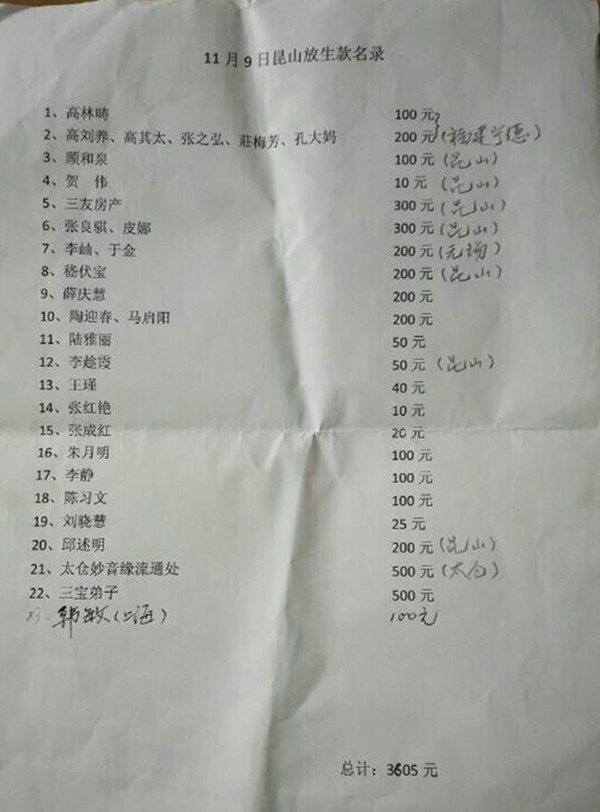 11月9日昆山放生款名录
1、高林畴 100元
2、高刘养、高其太、张之弘、莊梅芳、孔大妈 200元(福建宁德)
3、顾和泉 100元(昆山)
4、贺 伟 10元(昆山)
5、三友房产 300元(昆山)
6、张良骐、皮娜 300元(昆山)
7、李岫、于金 200元(无锡)
8、嵇伏宝 200元(昆山)
9、薛庆慧 200元
10、陶迎春、马启阳 200元
11、陆雅丽 50元
12、李趁霞 50元(昆山)
13、王瑾 40元
14、张红艳 10元
15、张成红 20元
16、朱月明 100元
17、李静 100元
18、陈习文 100元
19、刘骁慧 25元
20、邱述明 200元(昆山)
21、太仓妙音缘流通处 500元(太仓)
22、三宝弟子 500元
23、韩敏(上海) 100元
总计：3605元